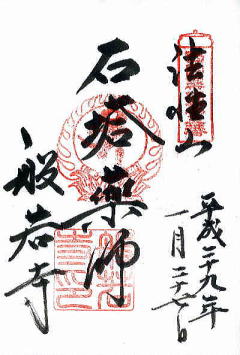 法性山
平成二十九年
一月二十七日
石塔薬師
般若寺